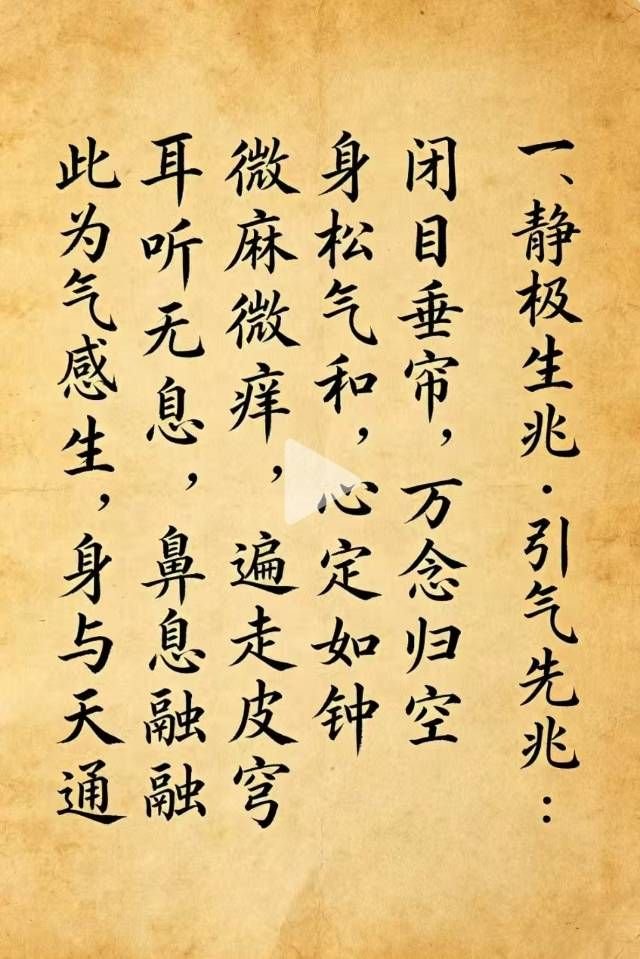 一、静极生兆·引气先兆：
闭目垂帘，万念归空
身松气和，心定如钟
微麻微痒，遍走皮穹
耳听无息，鼻息融融
此为气感生，身与天通